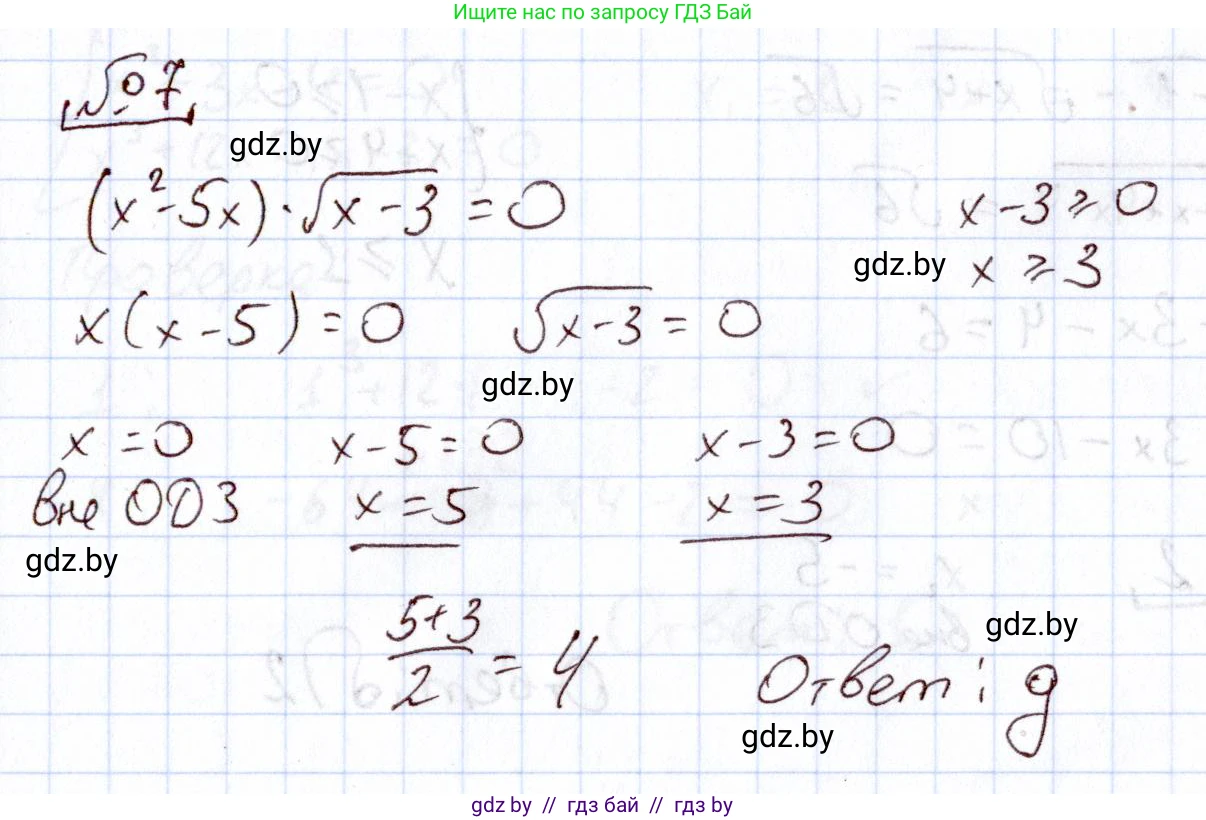 Ищите нас по запросу ГДЗ Бай
№ 7
gdz.by
(x²-5x)·√(x-3) = 0
x-3 ≥ 0
gdz.by
x ≥ 3
x(x-5) = 0
√(x-3) = 0
gdz.by
x = 0
x-5 = 0
x-3 = 0
вне ОДЗ
x = 5
x = 3
gdz.by
(5+3)/2 = 4
gdz.by
Ответ: д
gdz.by
gdz by // гдз бай // гдз by